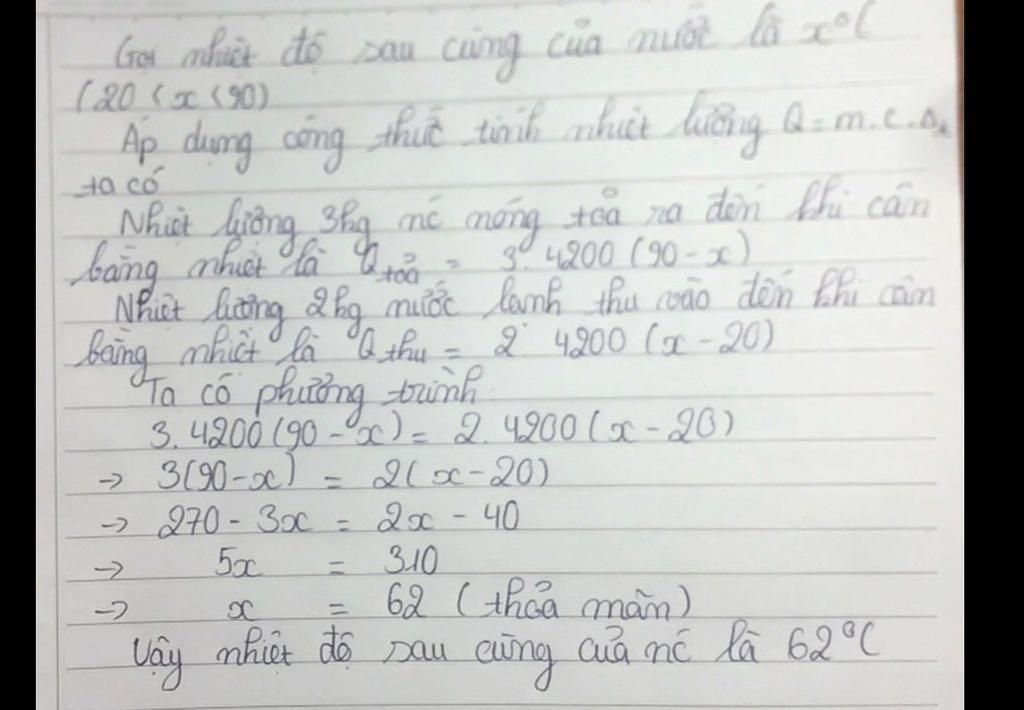 Gọi nhiệt độ sau cùng của nước là x°C
(20 < x < 90)
Áp dụng công thức tính nhiệt lượng Q = m.c.Δ
ta có
Nhiệt lượng 3kg nc nóng toả ra đến khi cân
bằng nhiệt là Q toả = 3. 4200 (90 - x)
Nhiệt lượng 2kg nước lạnh thu vào đến khi cân
bằng nhiệt là Q thu = 2. 4200 (x - 20)
Ta có phương trình
3. 4200 (90 - x) = 2. 4200 (x - 20)
→ 3(90 - x) = 2(x - 20)
→ 270 - 3x = 2x - 40
→ 5x = 310
→ x = 62 (thoả mãn)
Vậy nhiệt độ sau cùng của nc là 62°C